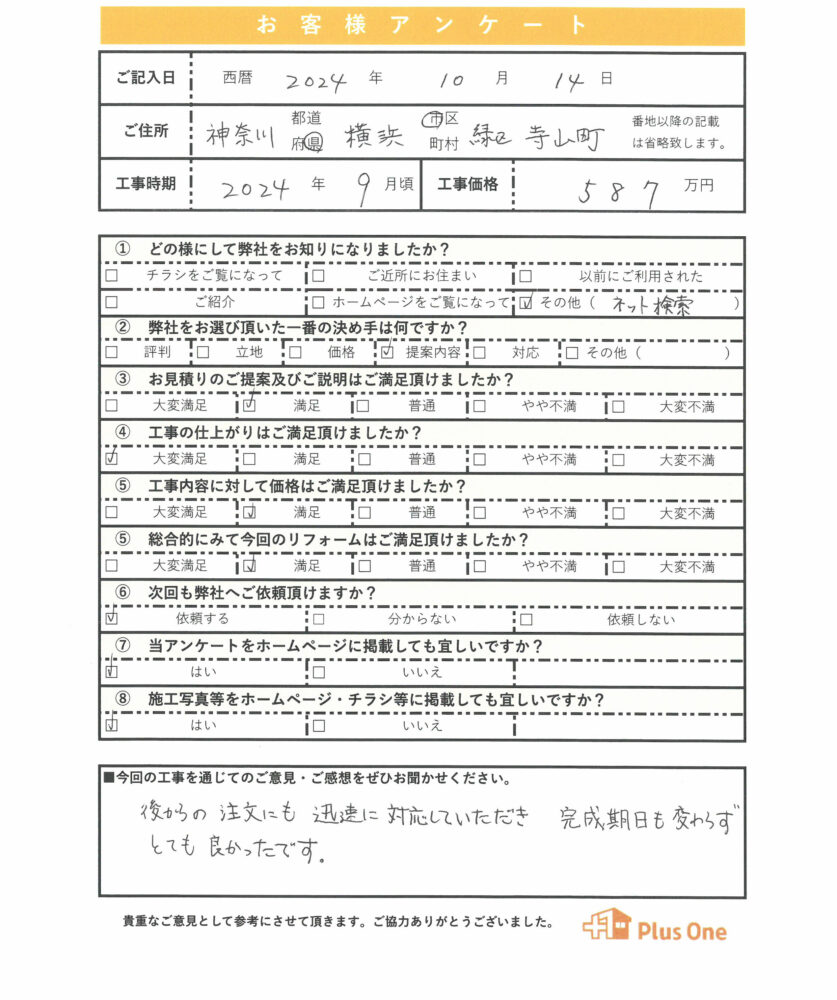 お客様アンケート
ご記入日 西暦 2024 年 10 月 14 日
ご住所 神奈川 都道府県 横浜 市区町村 緑区 寺山町 番地以降の記載は省略致します。
工事時期 2024 年 9 月頃 工事価格 587 万円
① どの様にして弊社をお知りになりましたか？
□ チラシをご覧になって □ ご近所にお住まい □ 以前にご利用された
□ ご紹介 □ ホームページをご覧になって ☑ その他（ ネット検索 ）
② 弊社をお選び頂いた一番の決め手は何ですか？
□ 評判 □ 立地 □ 価格 ☑ 提案内容 □ 対応 □ その他（ ）
③ お見積りのご提案及びご説明はご満足頂けましたか？
□ 大変満足 ☑ 満足 □ 普通 □ やや不満 □ 大変不満
④ 工事の仕上がりはご満足頂けましたか？
☑ 大変満足 □ 満足 □ 普通 □ やや不満 □ 大変不満
⑤ 工事内容に対して価格はご満足頂けましたか？
□ 大変満足 ☑ 満足 □ 普通 □ やや不満 □ 大変不満
⑤ 総合的にみて今回のリフォームはご満足頂けましたか？
□ 大変満足 ☑ 満足 □ 普通 □ やや不満 □ 大変不満
⑥ 次回も弊社へご依頼頂けますか？
☑ 依頼する □ 分からない □ 依頼しない
⑦ 当アンケートをホームページに掲載しても宜しいですか？
☑ はい □ いいえ
⑧ 施工写真等をホームページ・チラシ等に掲載しても宜しいですか？
☑ はい □ いいえ
■今回の工事を通じてのご意見・ご感想をぜひお聞かせください。
後からの注文にも 迅速に対応していただき 完成期日も変わらず
とても良かったです。
貴重なご意見として参考にさせて頂きます。ご協力ありがとうございました。
Plus One